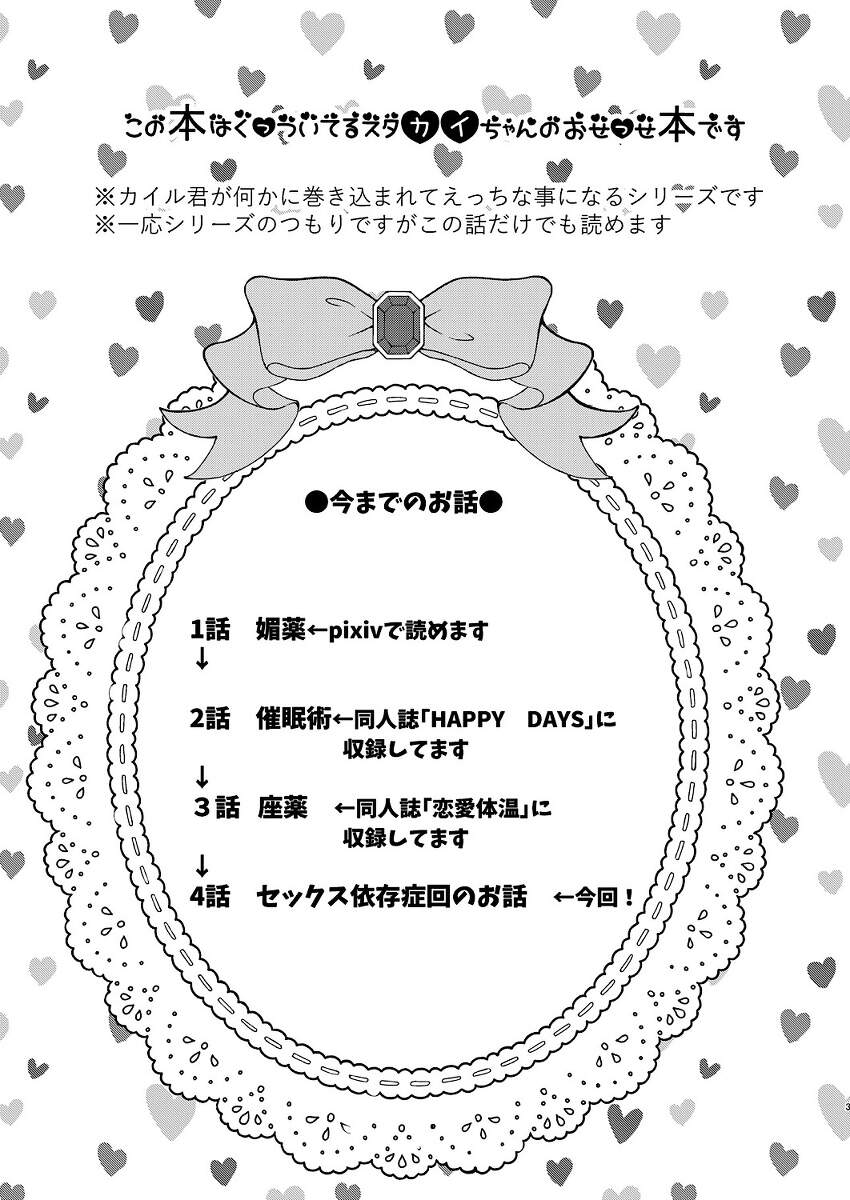 この本はくっついてるスタカイちゃんのおせっせ本です
※カイル君が何かに巻き込まれてえっちな事になるシリーズです
※一応シリーズのつもりですがこの話だけでも読めます
●今までのお話●
1話 媚薬←pixivで読めます
↓
2話 催眠術←同人誌「HAPPY DAYS」に
収録してます
↓
3話 座薬 ←同人誌「恋愛体温」に
収録してます
↓
4話 セックス依存症回のお話 ←今回!
3